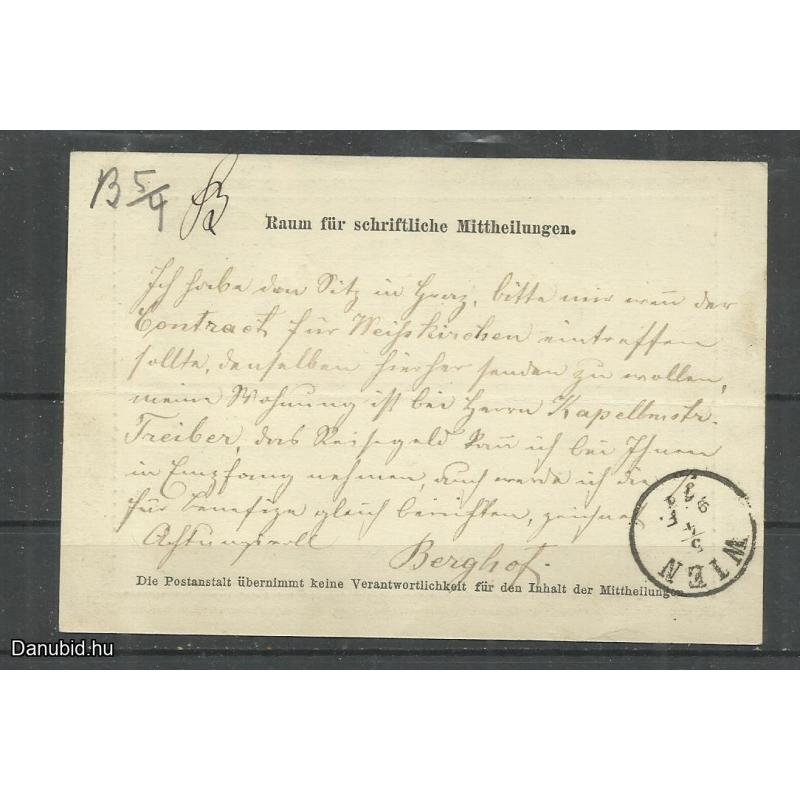 B 5/4 B
Raum für schriftliche Mittheilungen.
Ich habe den Sitz in Graz, bitte mir wenn der
Contract für Weißkirchen eintreffen
sollte, denselben hierher senden zu wollen,
meine Wohnung ist bei Herrn Kapellmstr.
Treiber, das Reisegeld kann ich bei Ihnen
in Empfang nehmen, auch werde ich die
für benefize gleich berichten, zeichnet
Achtungsvoll Berghof.
WIEN
5/4
Die Postanstalt übernimmt keine Verantwortlichkeit für den Inhalt der Mittheilungen
Danubid.hu